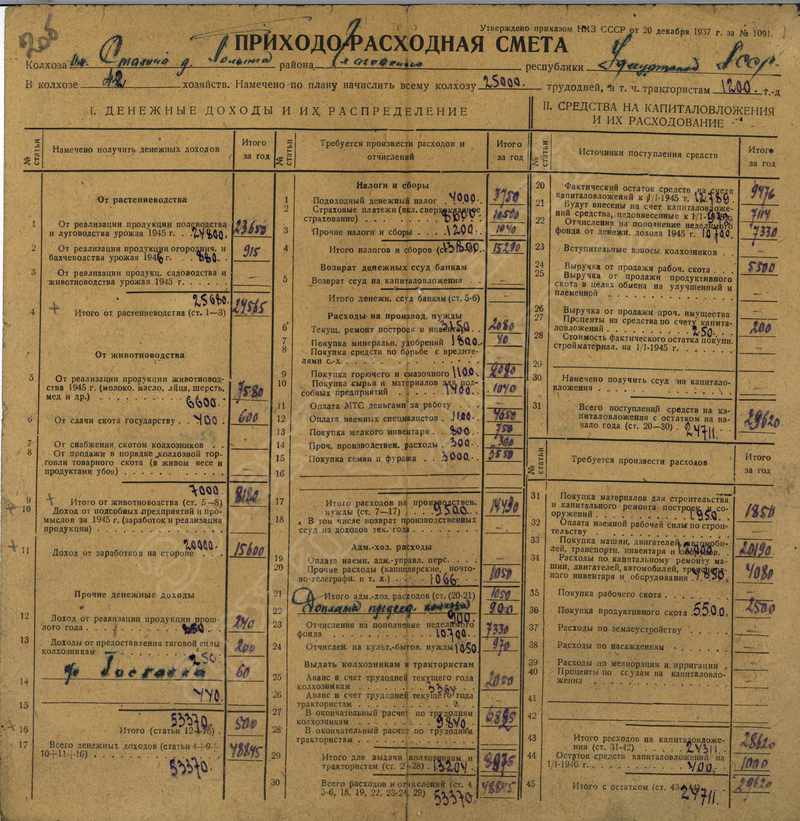 206
Утверждено приказом НКЗ СССР от 20 декабря 1937 г. за № 1091.
ПРИХОДО-РАСХОДНАЯ СМЕТА
Колхоза им. Сталина д. района республики Удмуртской АССР.
В колхозе 42 хозяйств. Намечено по плану начислить всему колхозу 25000. трудодней, в т. ч. трактористам 1200. т.-д
I. ДЕНЕЖНЫЕ ДОХОДЫ И ИХ РАСПРЕДЕЛЕНИЕ
№ статьи
Намечено получить денежных доходов
Итого за год
От растениеводства
1 От реализации продукции полеводства
и луговодства урожая 1945 г. 24800. 23650
2 От реализации продукции огороднич. и
бахчеводства урожая 1945 г. 880. 915
3 От реализации продукц. садоводства и
животноводства урожая 1945 г.
25680.
4 Итого от растениеводства (ст. 1—3) 24565
От животноводства
5 От реализации продукции животновод-
ства 1945 г. (молоко, масло, яйца, шерсть,
мед и др.) 7580
6600.
6 От сдачи скота государству 400. 600
7 От снабжения скотом колхозников
8 От продажи в порядке колхозной тор-
говли товарного скота (в живом весе и
продуктами убоя)
7000.
9 Итого от животноводства (ст. 5—8) 8180
10 Доход от подсобных предприятий и про-
мыслов за 1945 г. (заработок и реализация
продукции)
20000.
11 Доход от заработков на стороне 15600
Прочие денежные доходы
12 Доход от реализации продукции прош-
лого года 240
13 Доходы от предоставления тяговой силы
колхозникам 250. 200
14 60
440.
15
53370.
16 Итого (статьи 12—16) 500
17 Всего денежных доходов (статьи 4+9+
10+11+16) 48845
53370.
№ статьи
Требуется произвести расходов и
отчислений
Итого за год
Налоги и сборы
1 Подоходный денежный налог 4000. 3750
2 Страховые платежи (вкл. сверх
страхование) 10500
3 Прочие налоги и сборы 1200. 1040
4 Итого налогов и сборов 15290
Возврат денежных ссуд банкам
5 Возврат ссуд на капиталовложения
Итого денежн. ссуд банкам (ст. 5-6)
Расходы на производ. нужды
6 Текущ. ремонт построек и инвентаря 3150. 2080
7 Покупка минеральн. удобрений 1800. 40
8 Покупка средств по борьбе с вредите-
лями с.-х.
9 Покупка горючего и смазочного 1100. 2080
10 Покупка сырья и материалов для под-
собных предприятий 1400. 1040
11 Оплата МТС деньгами за работу
12 Оплата наемных специалистов 1100.
13 Покупка мелкого инвентаря 800. 750
14 Проч. производствен. расходы 300. 300
15 Покупка семян и фуража 3000. 3550
16
17 Итого расходов на производствен.
нужды (ст. 7—17) 9500. 14430
18 В том числе возврат производственных
ссуд из доходов тек. года
Адм.-хоз. расходы
19 Оплата наемн. адм.-управл. перс.
20 Прочие расходы (канцелярские, почто-
во-телеграф. и т. х.) 1066. 1050
21 Итого адм.-хоз. расходов (ст. (20-21) 1050
22 оплата председ. колхоза 900. 900
23 Отчисления на пополнение неделимого
фонда 10700. 7330
24 Отчислен. на культ.-бытов. нужды 1050. 970
Выдать колхозникам и трактористам
25 Аванс в счет трудодней текущего года
колхозникам 3364 2000
26 Аванс в счет трудодней текущего года
трактористам
27 В окончательный расчет по трудодням
колхозникам 9840. 6895
28 В окончательный расчет по трудодням
трактористам
29 Итого для выдачи колхозникам и
трактористам (ст. 25-28) 13204.
30 Всего расходов и отчислений (ст. 4,
5-6, 18, 19, 22, 23-24, 29) 48845
53370
II. СРЕДСТВА НА КАПИТАЛОВЛОЖЕНИЯ
И ИХ РАСХОДОВАНИЕ
№ статьи
Источники поступления средств
Итого за год
20 Фактический остаток средств на счете
капиталовложений к 1/1-1945 г. 12789 9476
21 Будут внесены на счет капиталовложе-
ний средства, недовнесенные к 1/1-1945 г. 7114
22 Отчисления на пополнение неделимого
фонда от денежн. дохода 1945 г. 10700. 7330
23 Вступительные взносы колхозников
24 Выручка от продажи рабоч. скота 5500
25 Выручка от продажи продуктивного
скота в целях обмена на улучшенный и
племенной
26 Выручка от продажи проч. имущества
27 Проценты на средства по счету капита-
ловложений 250. 200
28 Стоимость фактического остатка покупн.
стройматериал. на 1/1-1945 г.
29
30 Намечено получить ссуд на капитало-
вложения
31 Всего поступлений средств на ка-
питаловложения с остатком на на-
чало года (ст. 20—30) 24711. 29620
№ статьи
Требуется произвести расходов
Итого за год
31 Покупка материалов для строительства
и капитального ремонта построек и со-
оружений 1950. 1850
32 Оплата наемной рабочей силы по строи-
тельству
33 Покупка машин, двигателей, автомоби-
лей, транспортн. инвентаря и 20190
34 Расходы по капитальному ремонту ма-
шин, двигателей, автомобилей,
ного инвентаря и оборудования 4850. 4080
35 Покупка рабочего скота
36 Покупка продуктивного скота 5500. 2500
37 Расходы по землеустройству
38 Расходы по насаждениям
39 Расходы по мелиорации и ирригации
40 Проценты по ссудам на капиталовло-
жения
41
42
43 Итого расходов на капиталовложе-
ния (ст. 31-42) 24311. 28620
44 Остаток средств капиталовложений на
1/1-1946 г. 400. 1000
45 Итого с остатком (ст. 43-44) 29620
24711.